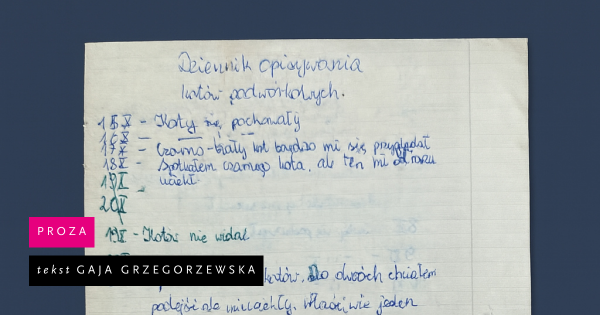 Dziennik opisywania
kotów podwórkowych.
15 X - Koty się pochowały
16 X -
17 X - Czarno-biały kot bardzo mi się przyglądał
18 X - Spotkałem czarnego kota, ale ten mi od razu
19 X - uciekł.
20 X
19 X - Kotów nie widać
kotów. Do dwóch chciałem
podejść ale mi uciekły. właściwie jeden
PROZA
tekst GAJA GRZEGORZEWSKA